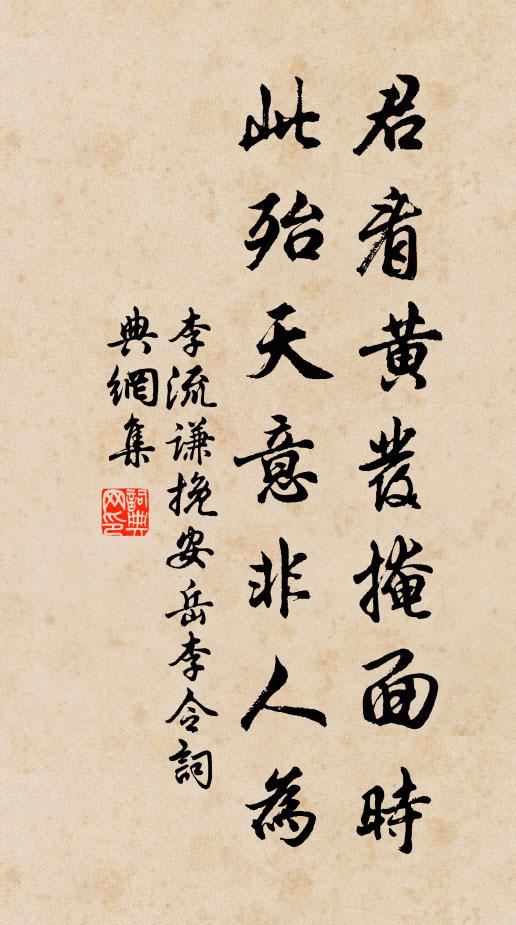 君看黄發掩面時
此殆天意非人為
李流謙挽安岳李令詞
典網集
詞典网印